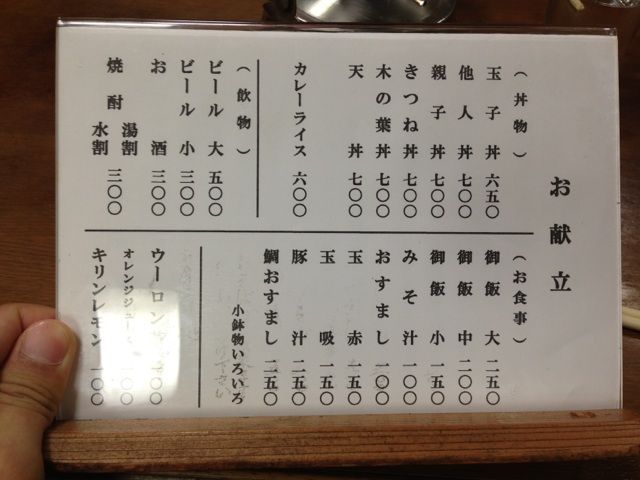 お献立
(丼物)
玉子丼 六五〇
他人丼 七〇〇
親子丼 七〇〇
きつね丼 七〇〇
木の葉丼 七〇〇
天丼 七〇〇
カレーライス 六〇〇
(飲物)
ビール 大 五〇〇
ビール 小 三〇〇
お酒 三〇〇
焼酎 湯割 水割 三〇〇
(お食事)
御飯 大 二五〇
御飯 中 二〇〇
御飯 小 一五〇
みそ汁 一〇〇
おすまし 一〇〇
玉赤 一五〇
玉吸 一五〇
豚汁 二五〇
鯛おすまし 一五〇
小鉢物いろいろ
ウーロン 一〇〇
オレンジジュース 一〇〇
キリンレモン 一〇〇